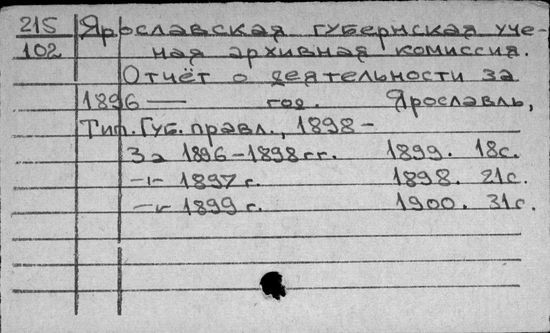 215 Ярославская губернская уче-
102 ная архивная комиссия.
Отчёт о деятельности за
1896 — год. Ярославль,
Тип. Губ. правл., 1898 –
За 1896–1898 гг. 1899. 18с.
–"– 1897 г. 1898. 21с.
–"– 1899 г. 1900. 31с.